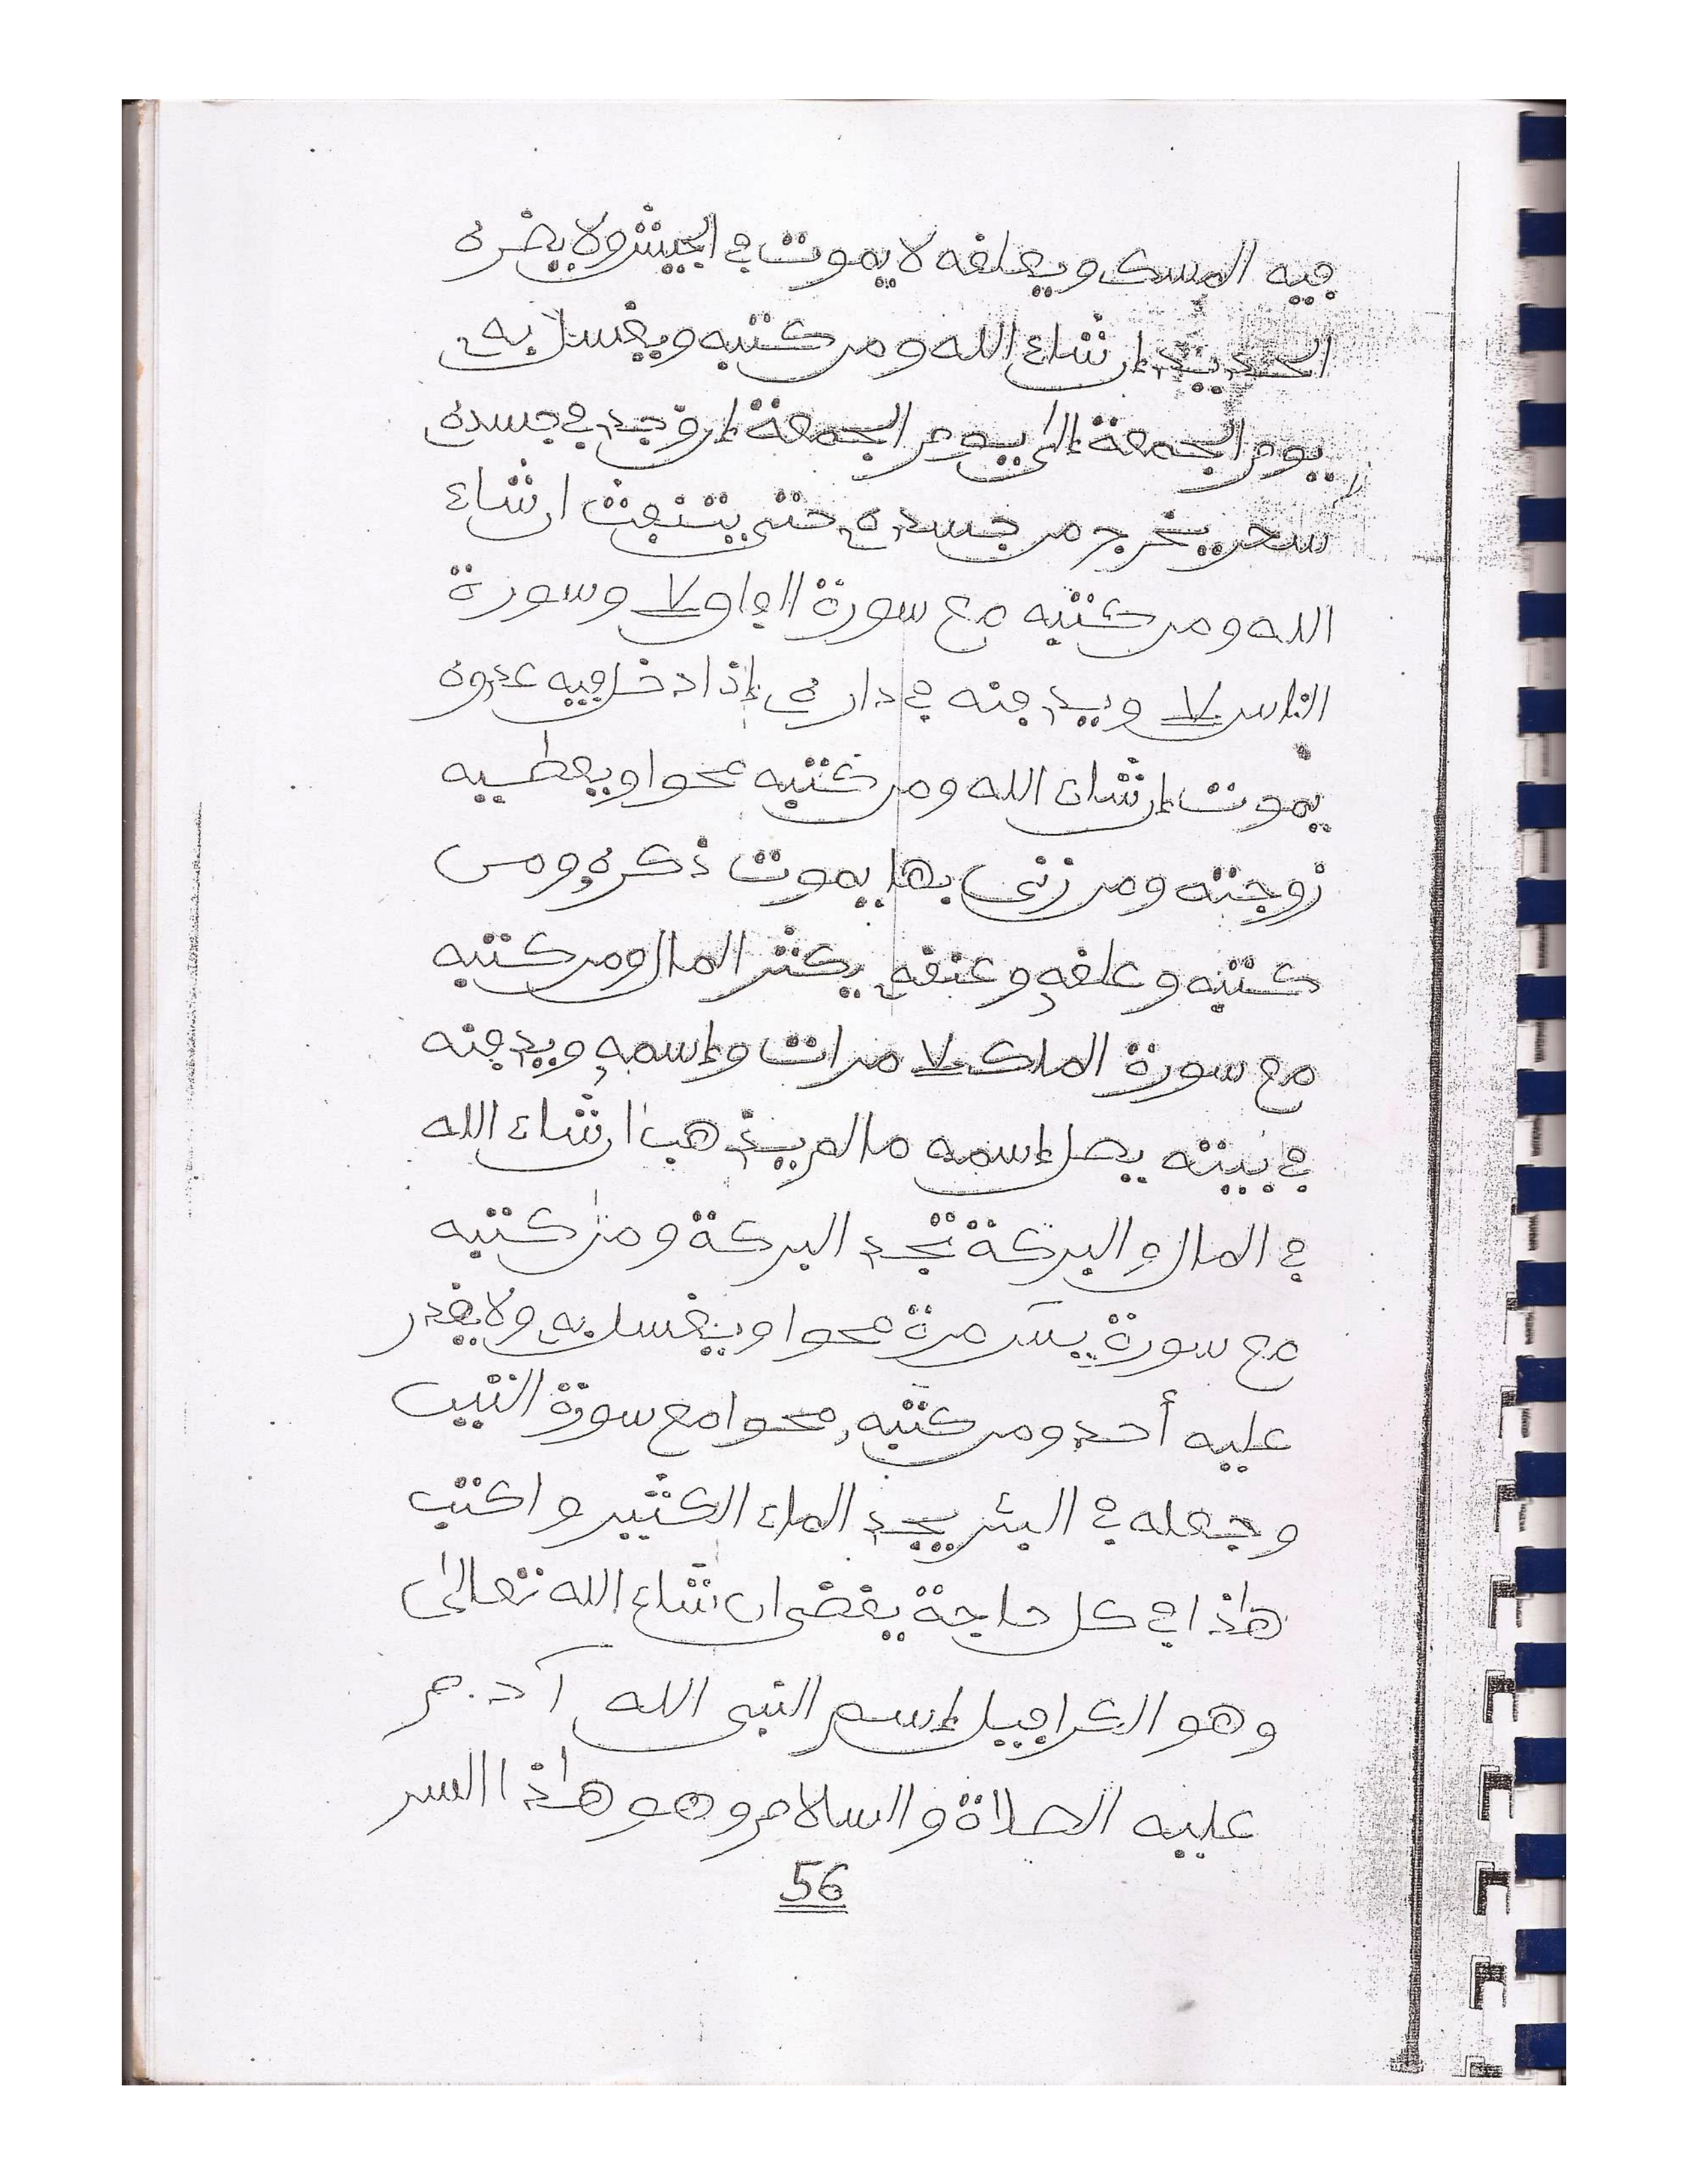 فيه المسك ويعلقه لا يموت في الجيش ولا يضره
الحديد إن شاء الله ومن كتبه ويغسل به
يوم الجمعة إلى يوم الجمعة إن وجد في جسده
سحر يخرج من جسده حتى يتنفث ان شاء
الله ومن كتبه مع سورة ٧ وسورة
الناس ٧ ويدفنه في داره إذا دخل فيه عدوه
يموت إن شاء الله ومن كتبه محوا ويعطيه
زوجته ومن زنى بها يموت ذكره ومن
كتبه وعلقه وعنقه يكثر المال ومن كتبه
مع سورة الملك ٧ مرات وإسمه ويدفنه
في بيته يصل إسمه ما لم يذهب ان شاء الله
في المال والبركة تجد البركة ومن كتبه
مع سورة يس مرة محوا ويغسل به ولا يقدر
عليه أحد ومن كتبه محوا مع سورة
وجعله في البئر يجد الماء الكثير واكتب
هاذا في كل حاجة يقضى ان شاء الله تعالى
وهو إسم النبى الله آدم
عليه الصلاة والسلام وهو هاذا السر
56